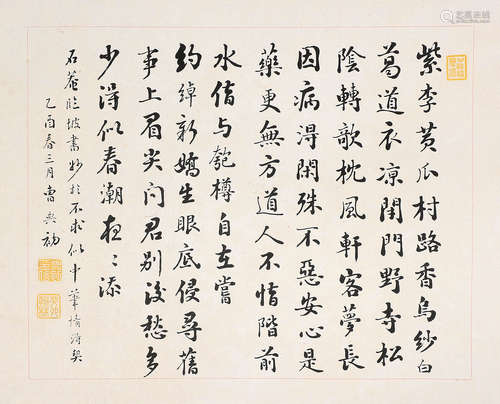 紫李黄瓜村路香烏紗白
葛道衣凉閉門野寺松
陰轉欹枕風軒客夢長
因病得閑殊不惡安心是
藥更無方道人不惜階前
水借與匏樽自在嘗
約綽新嬌生眼底侵尋舊
事上眉尖问君别後愁多
少得似春潮夜々添
石菴臨坡書妙於不求似中筆
乙酉春三月曹典初